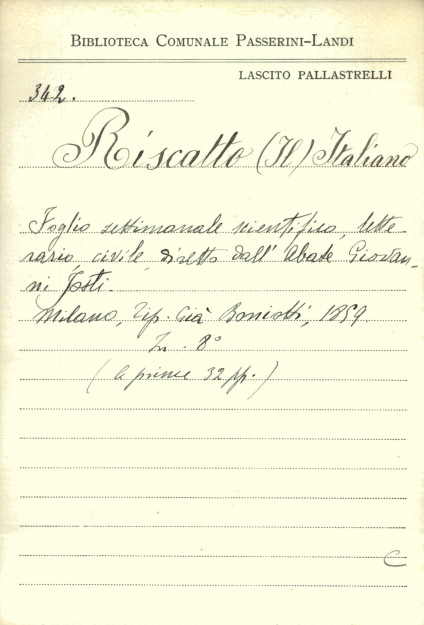 BIBLIOTECA COMUNALE PASSERINI-LANDI
LASCITO PALLASTRELLI
342.
Riscatto (Il) Italiano
Foglio settimanale scientifico, lette-
rario civile, diretto dall' Abate Giovan-
ni Josti.
Milano, Tip. Già Boniotti, 1859.
In. 8°
(le prime 32 pp.)
C